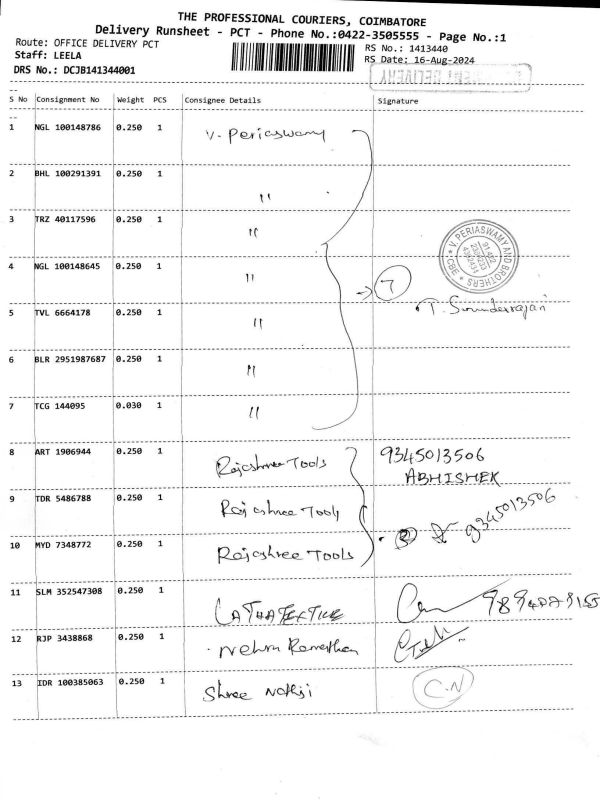 THE PROFESSIONAL COURIERS, COIMBATORE
Delivery Runsheet - PCT - Phone No.:0422-3505555 - Page No.:1
Route: OFFICE DELIVERY PCT
RS No.: 1413440
Staff: LEELA
RS Date: 16-Aug-2024
DRS No.: DCJB141344001
S No Consignment No Weight PCS Consignee Details Signature
1 NGL 100148786 0.250 1 V. Periaswamy
2 BHL 100291391 0.250 1 "
3 TRZ 40117596 0.250 1 "
V. PERIASWAMY AND BROTHERS * CBE *
4 NGL 100148645 0.250 1 " 7
5 TVL 6664178 0.250 1 " T. Sounderrajan
6 BLR 2951987687 0.250 1 "
7 TCG 144095 0.030 1 "
8 ART 1906944 0.250 1 Rajashree Tools 9345013506
ABHISHEK
9 TDR 5486788 0.250 1 Rajashree Tools 9345013506
10 MYD 7348772 0.250 1 Rajashree Tools
11 SLM 352547308 0.250 1
12 RJP 3438868 0.250 1 Nehru
13 IDR 100385063 0.250 1 Shree Nathji C.N